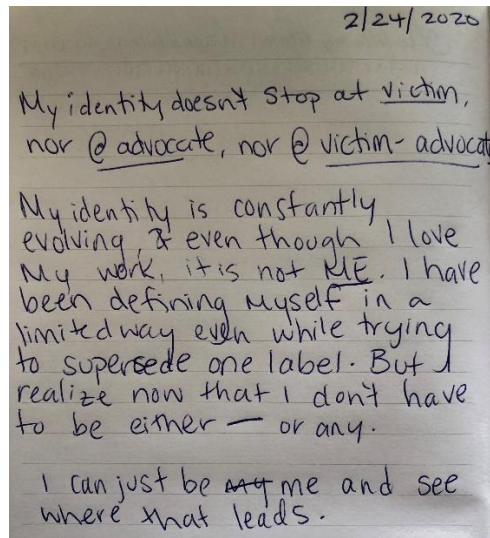 2/24/2020
My identity doesn't stop at victim,
nor @ advocate, nor @ victim-advocat
My identity is constantly
evolving, & even though I love
My work, it is not ME. I have
been defining myself in a
limited way even while trying
to supersede one label. But I
realize now that I don't have
to be either — or any.
I can just be my me and see
where that leads.